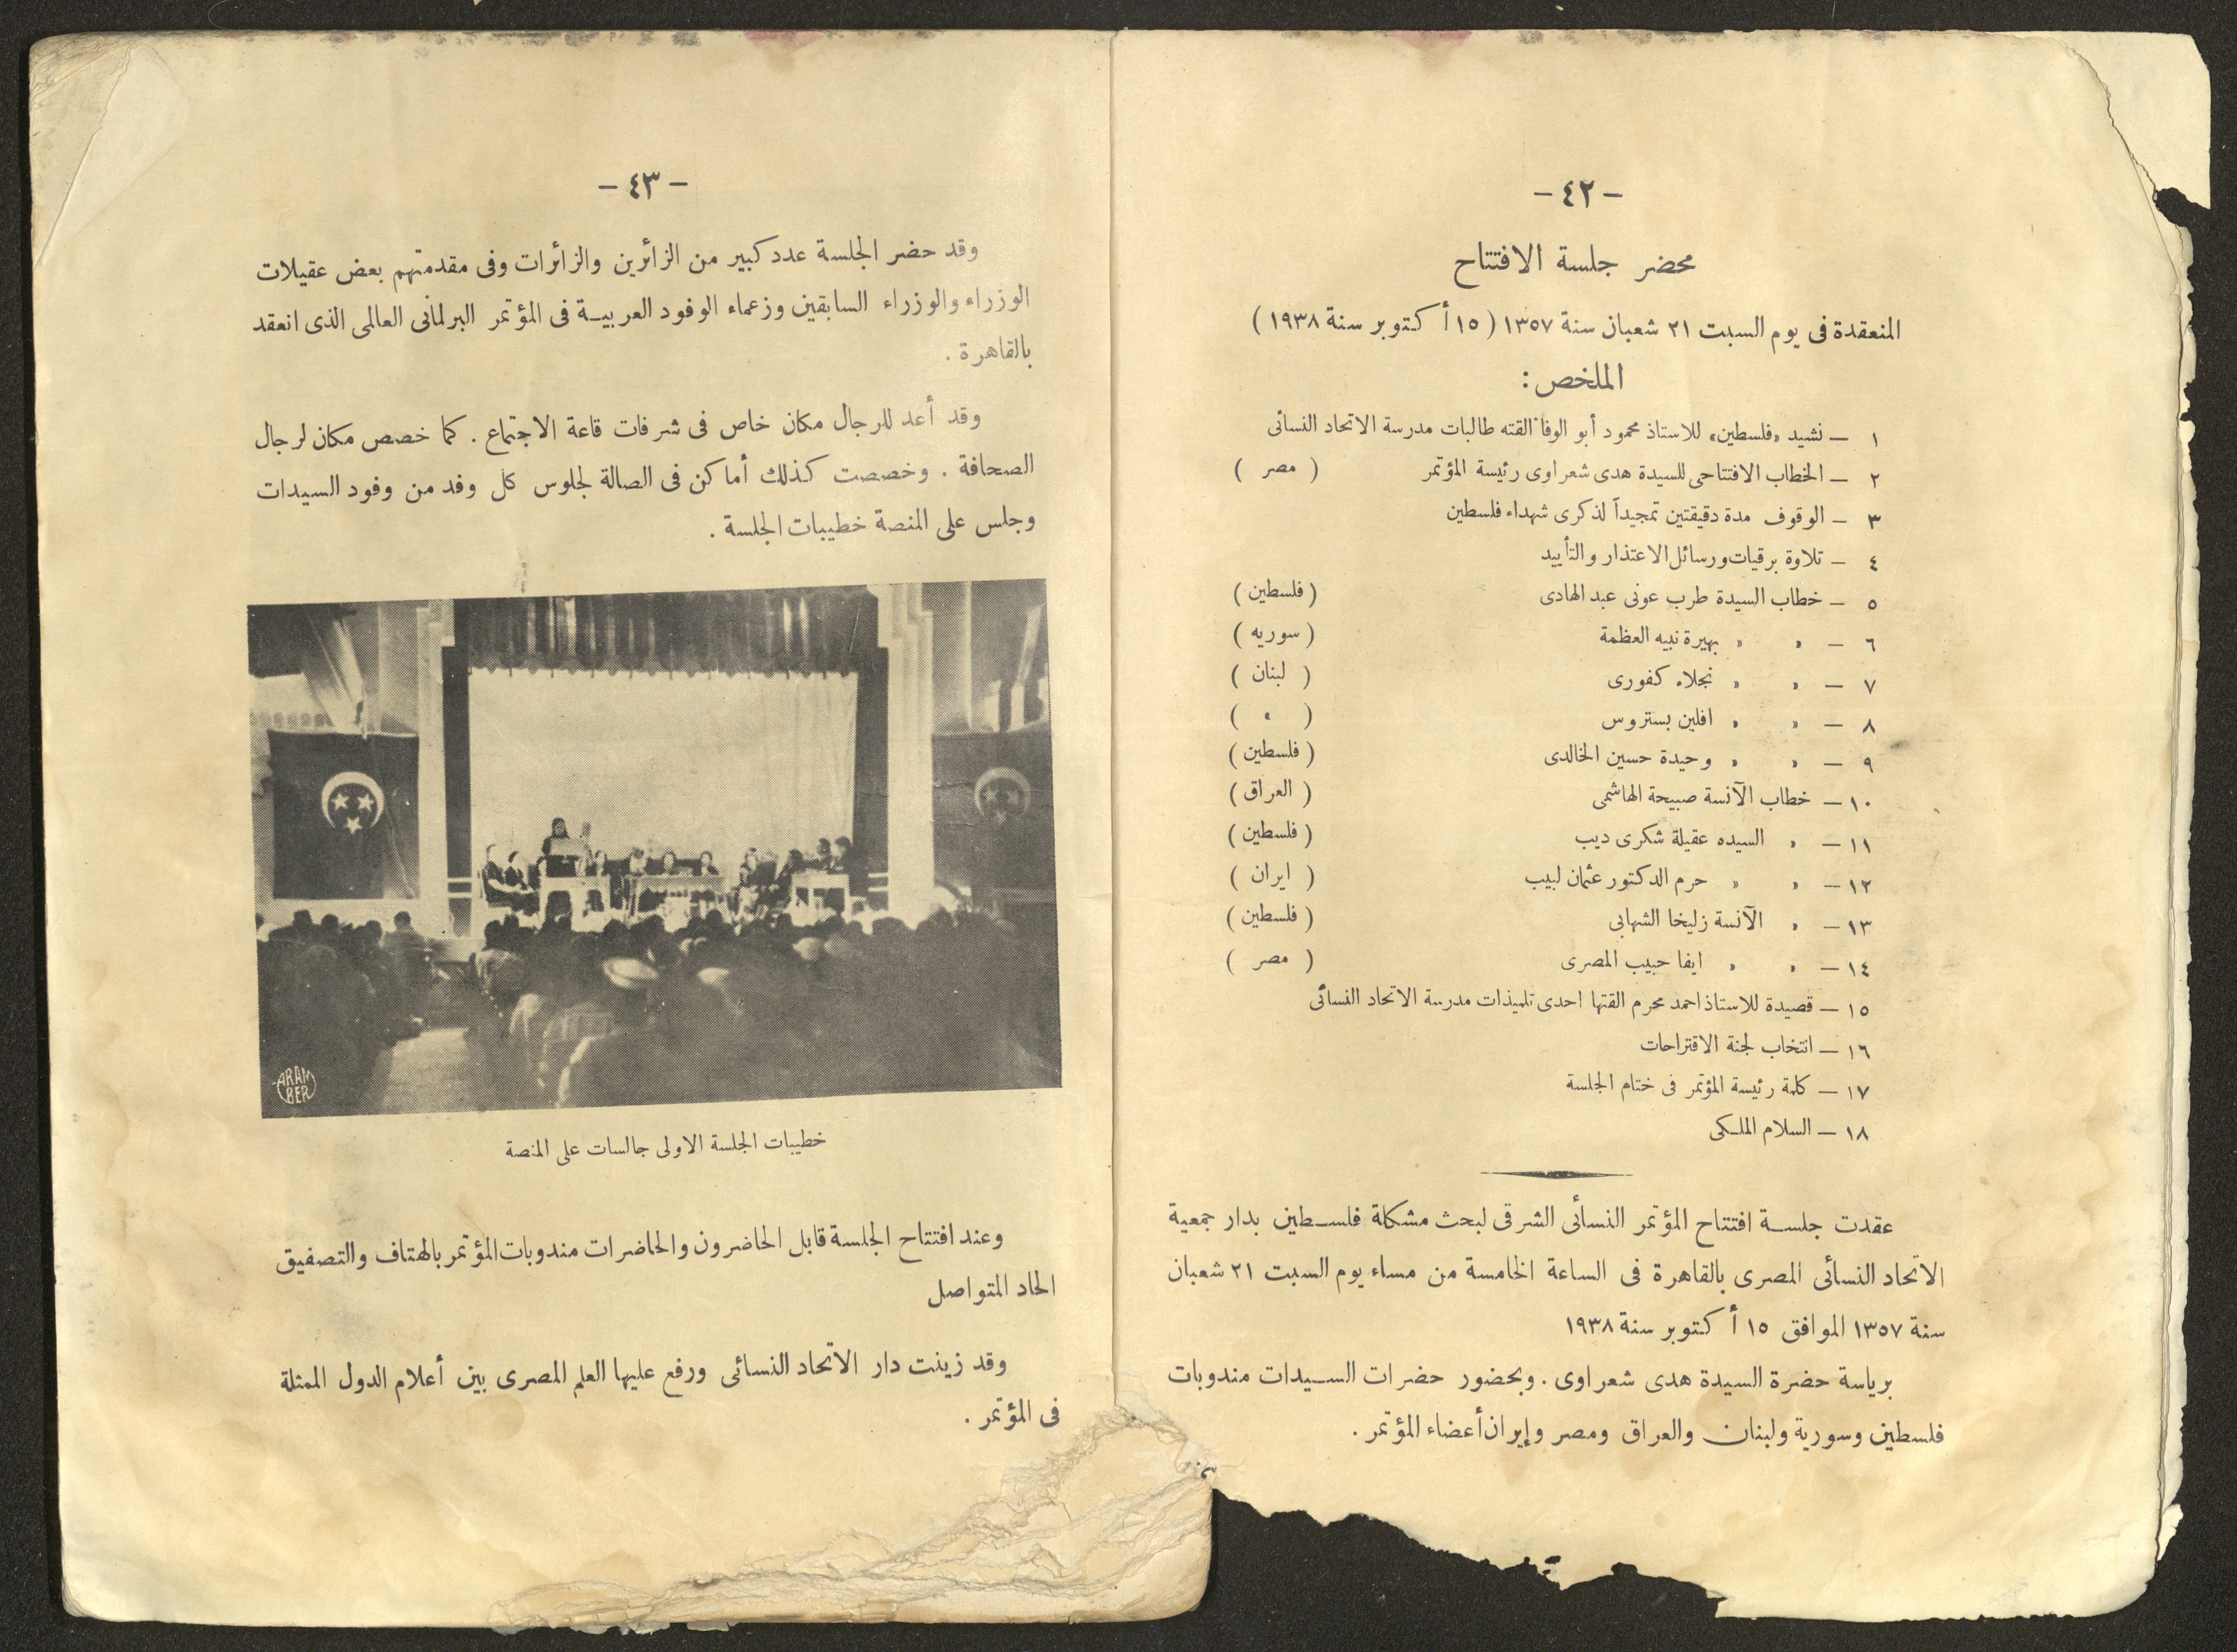 — ٤٢ —
محضر جلسة الافتتاح
المنعقدة فى يوم السبت ٢١ شعبان سنة ١٣٥٧ ( ١٥ أكتوبر سنة ١٩٣٨ )
الملخص :
١ — نشيد «فلسطين» للاستاذ محمود أبو الوفا القته طالبات مدرسة الاتحاد النسائى
٢ — الخطاب الافتتاحى للسيدة هدى شعراوى رئيسة المؤتمر ( مصر )
٣ — الوقوف مدة دقيقتين تمجيداً لذكرى شهداء فلسطين
٤ — تلاوة برقيات ورسائل الاعتذار والتأييد
٥ — خطاب السيدة طرب عونى عبد الهادى ( فلسطين )
٦ — » » بهيرة نبيه العظمة ( سوريه )
٧ — » » نجلاء كفورى ( لبنان )
٨ — » » افلين بستروس ( » )
٩ — » » وحيدة حسين الخالدى ( فلسطين )
١٠ — خطاب الآنسة صبيحة الهاشمى ( العراق )
١١ — » السيده عقيلة شكرى ديب ( فلسطين )
١٢ — » » حرم الدكتور عثمان لبيب ( ايران )
١٣ — » الآنسة زليخا الشهابى ( فلسطين )
١٤ — » » ايفا حبيب المصرى ( مصر )
١٥ — قصيدة للاستاذ احمد محرم القتها احدى تلميذات مدرسة الاتحاد النسائى
١٦ — انتخاب لجنة الاقتراحات
١٧ — كلمة رئيسة المؤتمر فى ختام الجلسة
١٨ — السلام الملكى
عقدت جلسة افتتاح المؤتمر النسائى الشرقى لبحث مشكلة فلسطين بدار جمعية
الاتحاد النسائى المصرى بالقاهرة فى الساعة الخامسة من مساء يوم السبت ٢١ شعبان
سنة ١٣٥٧ الموافق ١٥ أكتوبر سنة ١٩٣٨
برياسة حضرة السيدة هدى شعراوى . وبحضور حضرات السيدات مندوبات
فلسطين وسورية ولبنان والعراق ومصر وإيران أعضاء المؤتمر .
— ٤٣ —
وقد حضر الجلسة عدد كبير من الزائرين والزائرات وفى مقدمتهم بعض عقيلات
الوزراء والوزراء السابقين وزعماء الوفود العربية فى المؤتمر البرلمانى العالمى الذى انعقد
بالقاهرة .
وقد أعد للرجال مكان خاص فى شرفات قاعة الاجتماع . كما خصص مكان لرجال
الصحافة . وخصصت كذلك أماكن فى الصالة لجلوس كل وفد من وفود السيدات
وجلس على المنصة خطيبات الجلسة .
ARAM
BER
خطيبات الجلسة الاولى جالسات على المنصة
وعند افتتاح الجلسة قابل الحاضرون والحاضرات مندوبات المؤتمر بالهتاف والتصفيق
الحاد المتواصل
وقد زينت دار الاتحاد النسائى ورفع عليها العلم المصرى بين أعلام الدول الممثلة
فى المؤتمر .